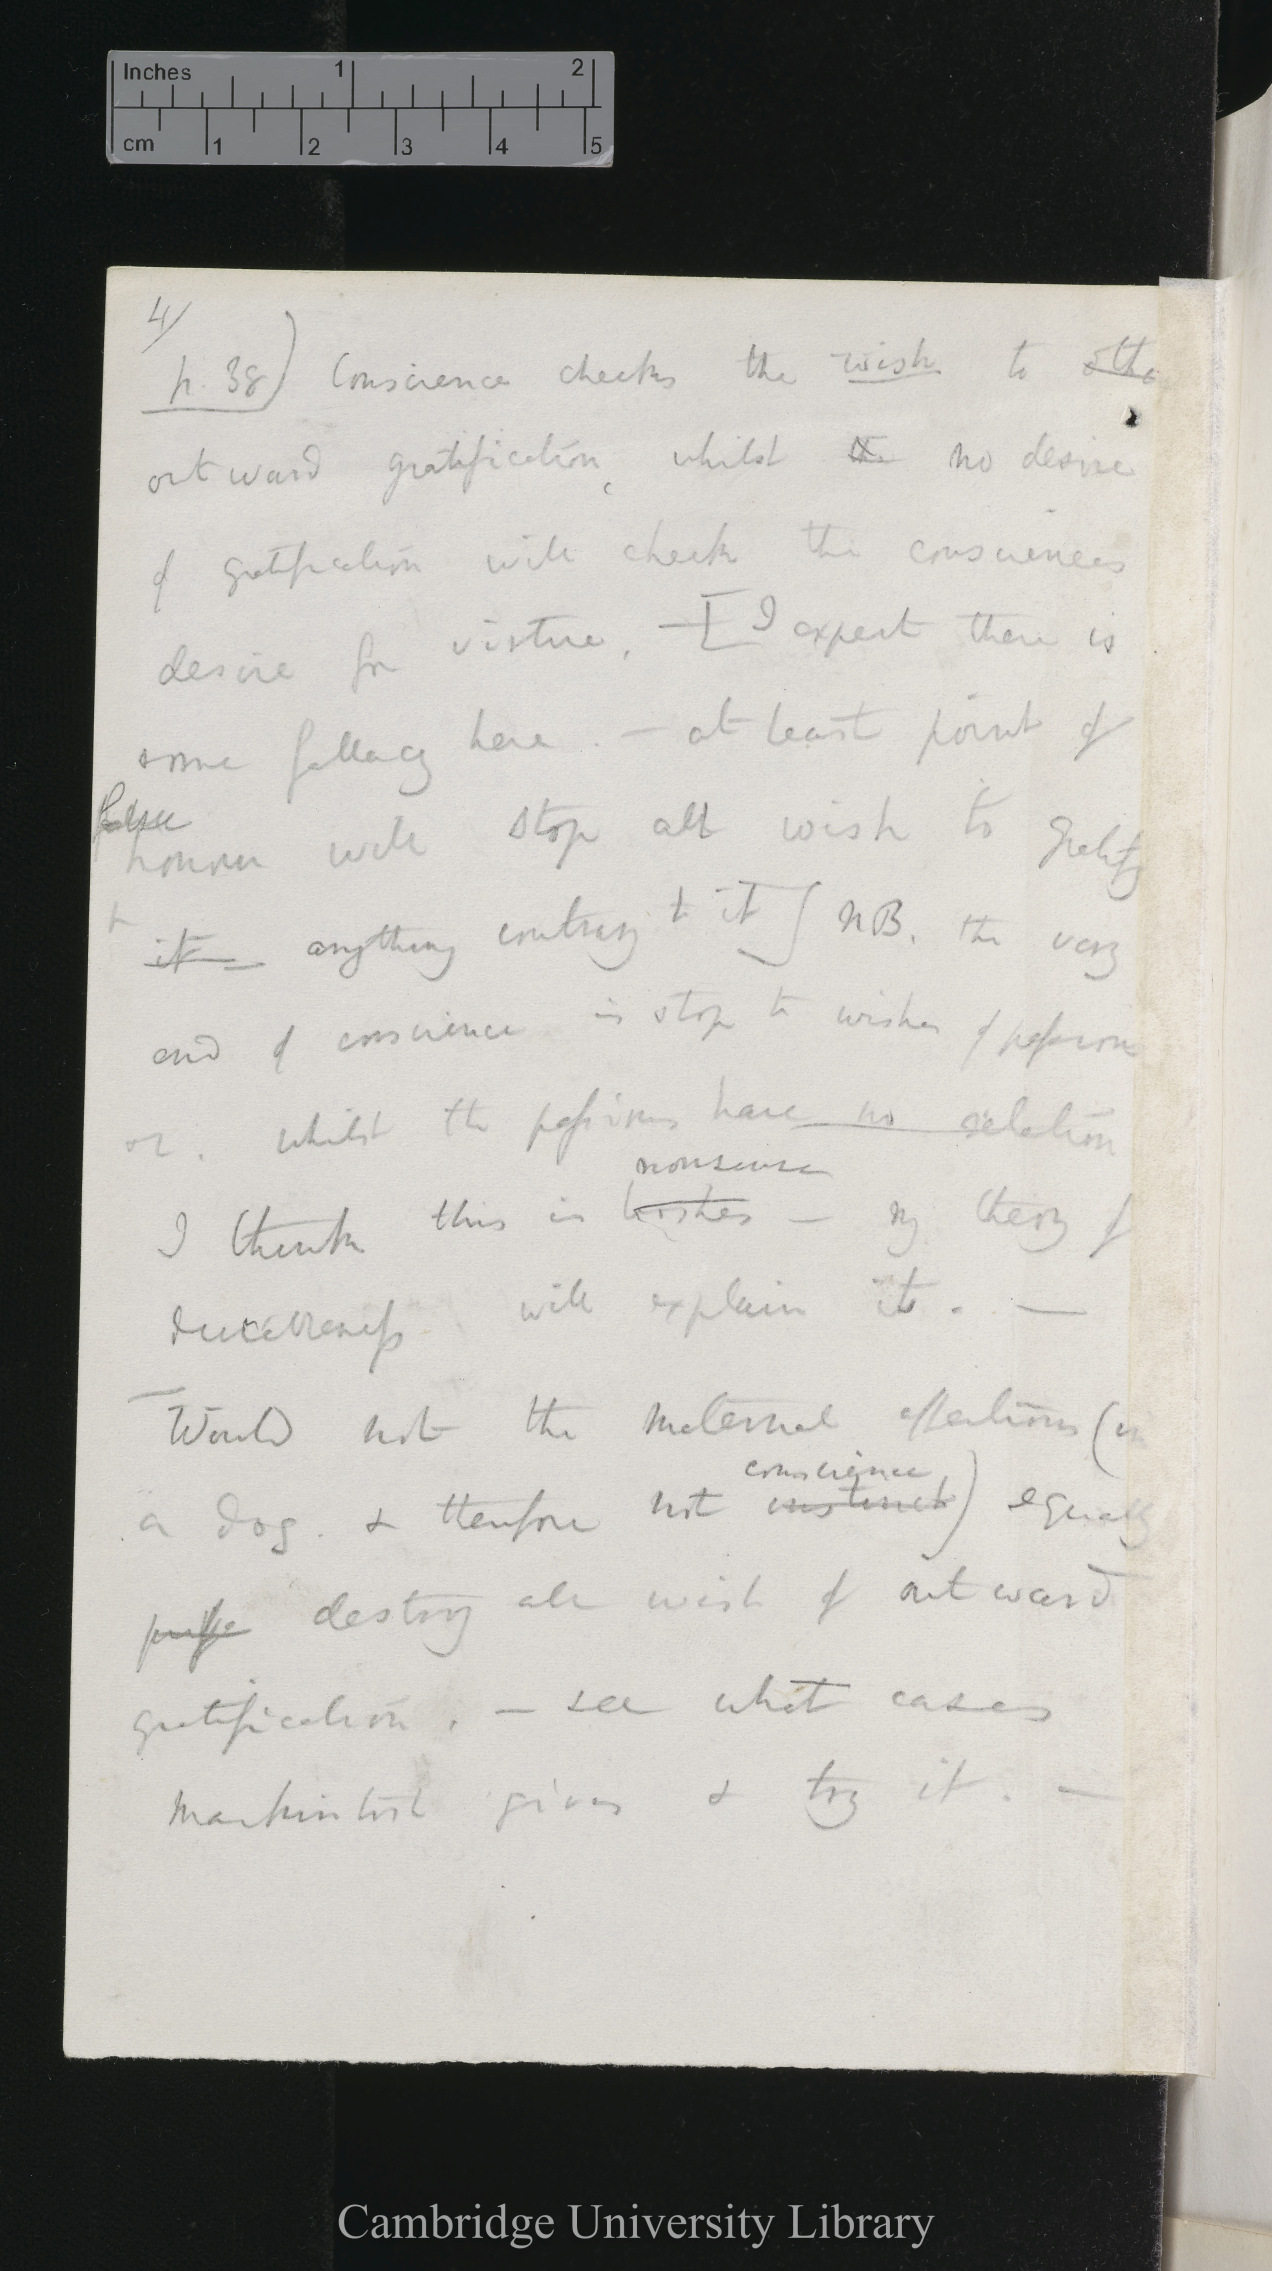 Inches 1 2
cm 1 2 3 4 5
4/
p. 38) Conscience checks the wish to othe
outward gratification, whilst the no desire
of gratification will check the consciences
desire for virtue. — [I expect there is
some fallacy here. — at least point of
false
honour will stop all wish to gratify
it anything contrary to it] NB. the very
end of conscience is stop to wishes of passions
or. whilst the passions have no relation
nonsense
I think this is — my theory of
will explain it. —
Would not the maternal affections (in
conscience
a dog. & therefore not instinct) equally
destroy all wish of outward
gratification. — see what cases
Mackintosh gives & try it. —
Cambridge University Library